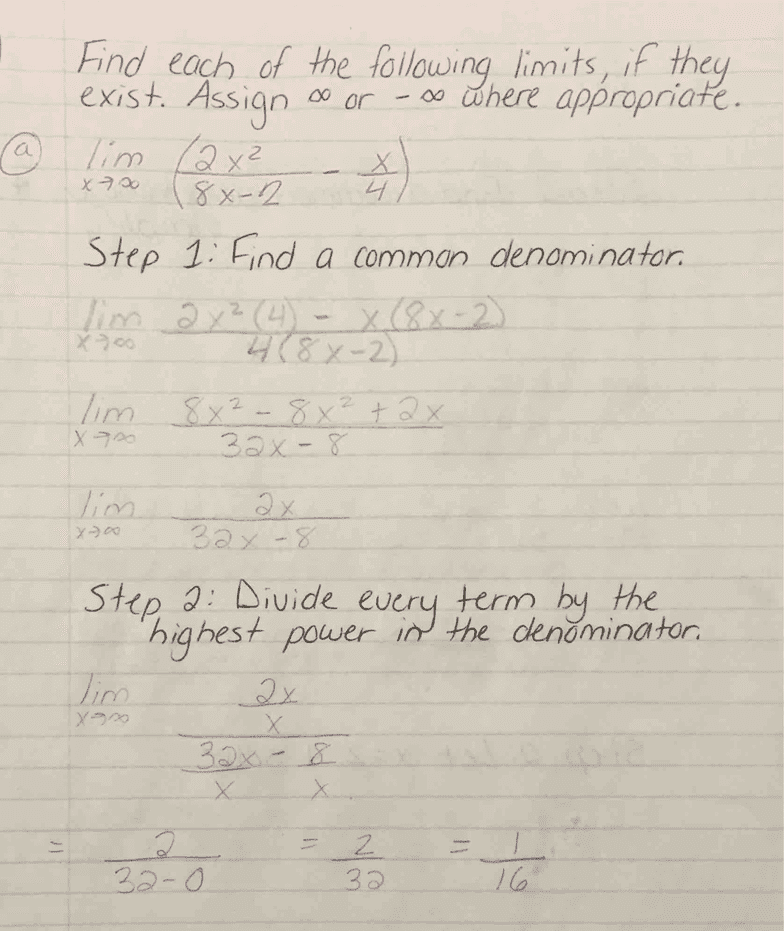 Find each of the following limits, if they
exist. Assign ∞ or -∞ where appropriate.
(a) lim x→∞ (2x²/(8x-2) - x/4)
Step 1: Find a common denominator.
lim x→∞ (2x²(4) - x(8x-2))/(4(8x-2))
lim x→∞ (8x² - 8x² + 2x)/(32x - 8)
lim x→∞ 2x/(32x - 8)
Step 2: Divide every term by the
highest power in the denominator.
lim x→∞ (2x/x)/(32x/x - 8/x)
= 2/(32-0) = 2/32 = 1/16